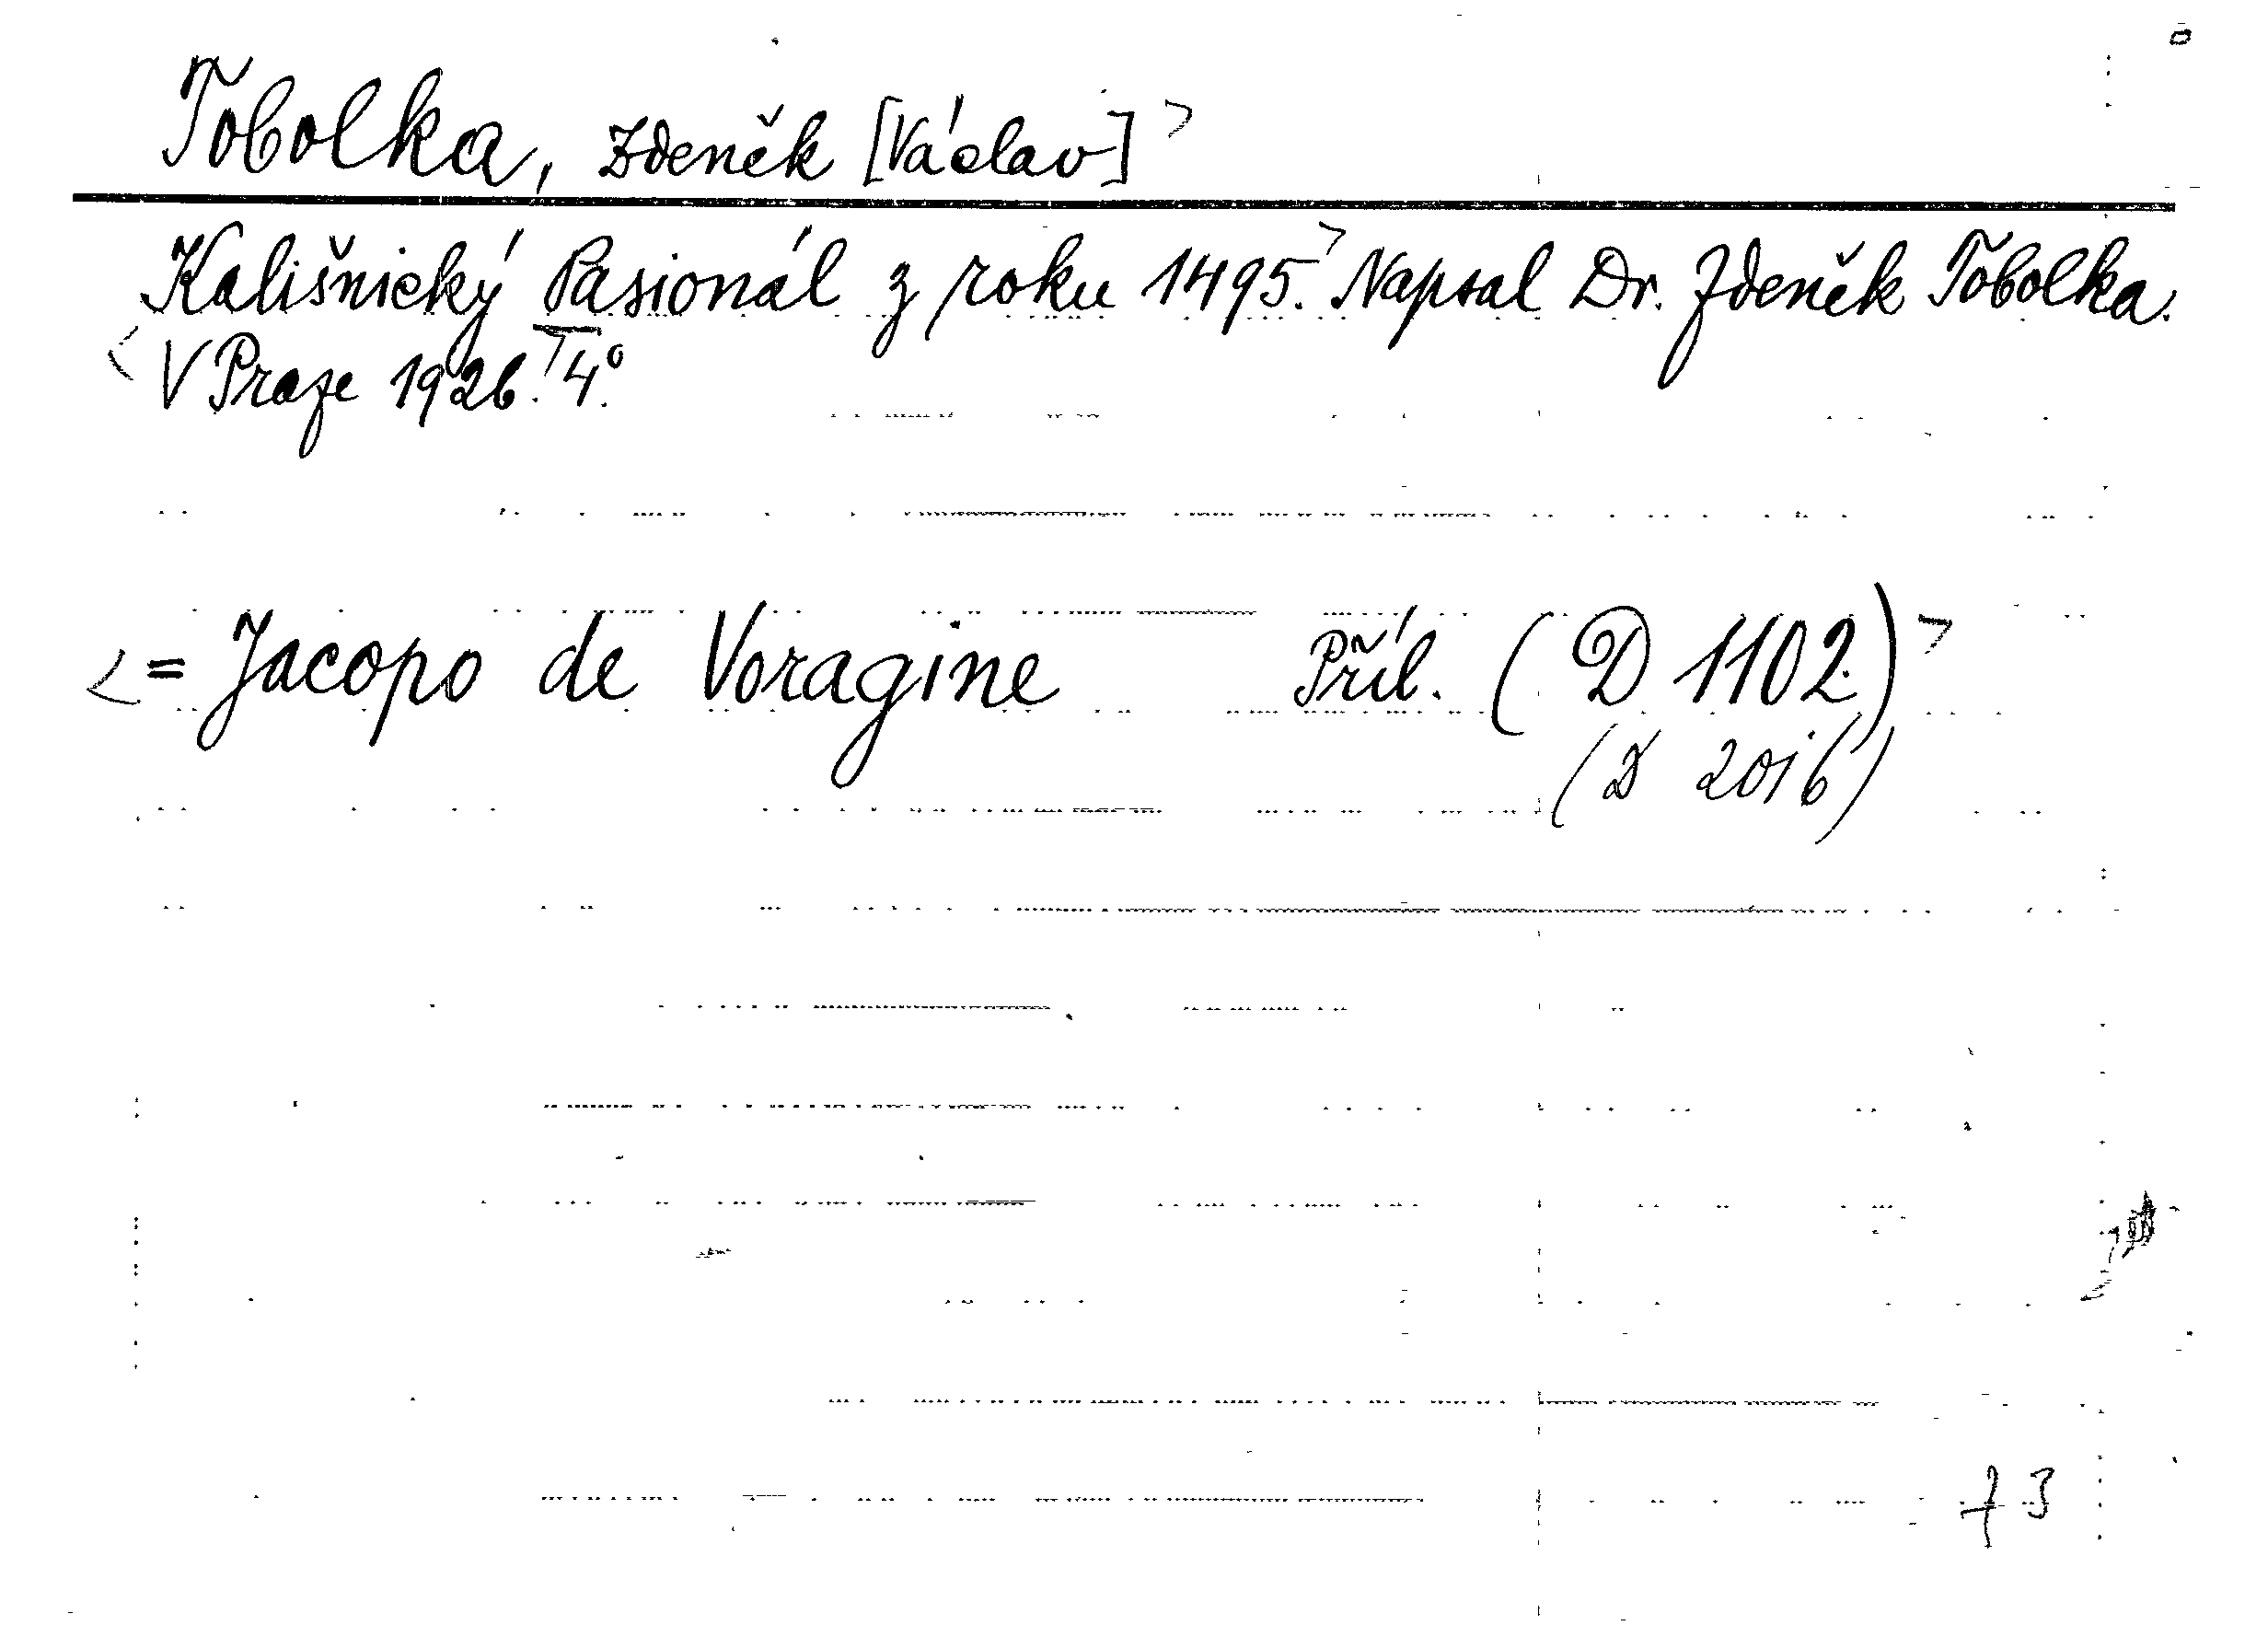 Tobolka, Zdeněk [Václav]>
Kališnický Pasionál z roku 1495.> Napsal Dr. Zdeněk Tobolka.
<V Praze 1926. 4°.
<= Jacopo de Voragine Příl. (D 1102)>
(D 2016)
73